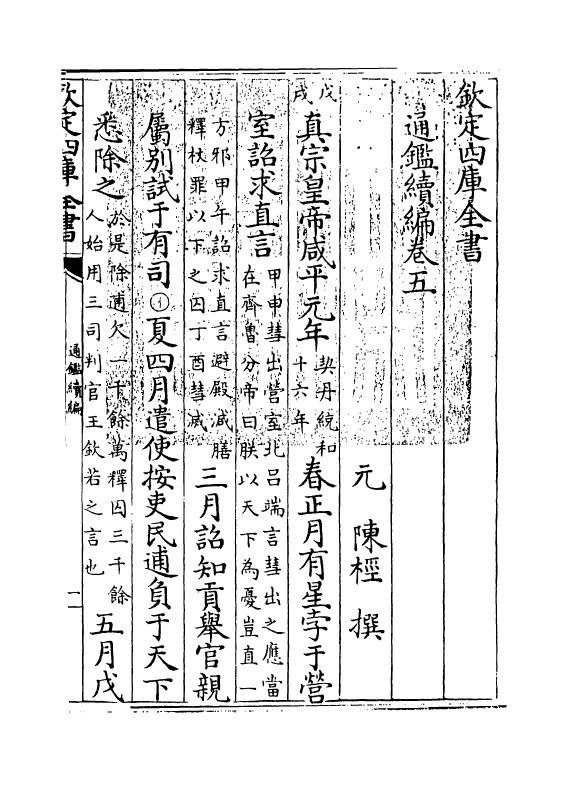 欽定四庫全書
通鑑續編卷五
元 陳桱 撰
戊戌
真宗皇帝咸平元年
契丹統和
十六年
春正月有星孛于營
室詔求直言
甲申彗出營室北呂端言彗出之應當
在齊魯分帝曰朕以天下為憂豈直一
方邪甲午詔求直言避殿減膳
釋杖罪以下之囚丁酉彗滅
三月詔知貢舉官親
屬別試于有司○夏四月遣使按吏民逋負于天下
悉除之
於是除逋欠一千餘萬釋囚三千餘
人始用三司判官王欽若之言也
五月戊
欽定四庫全書
通鑑續編
一